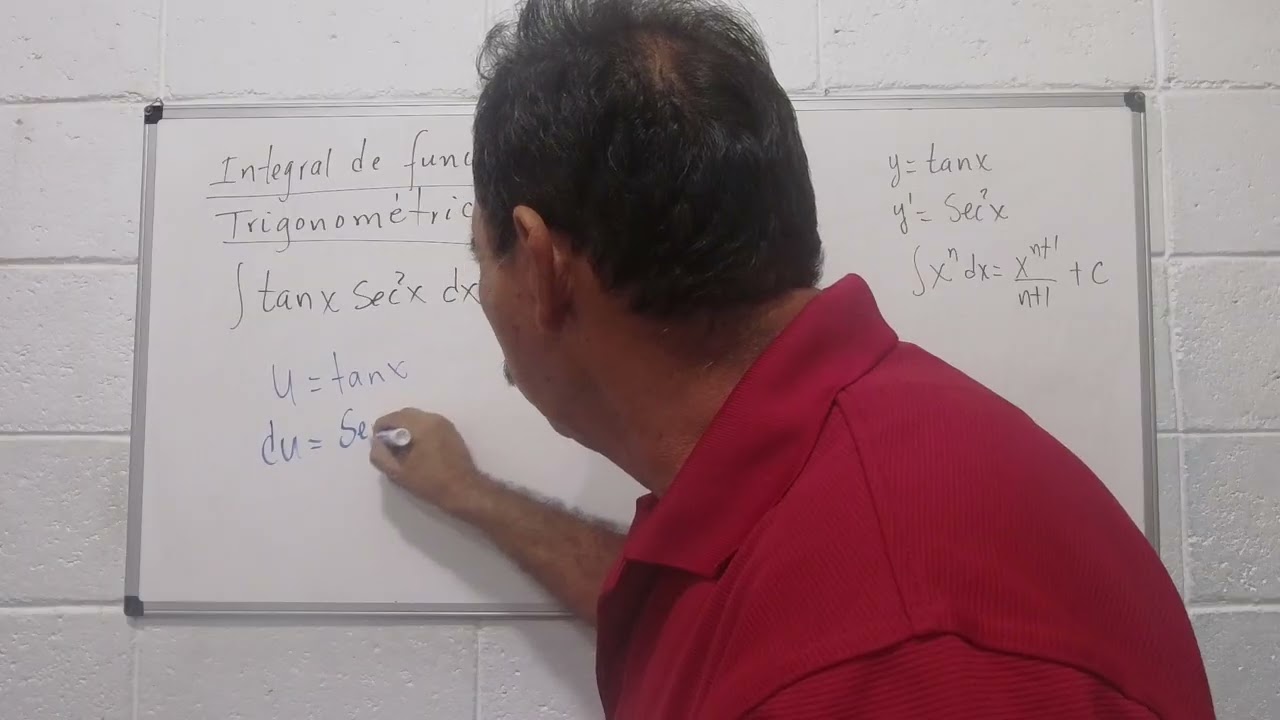 Integral de func
Trigonométric
∫ tanx Sec²x dx
u = tanx
du = Se
y = tanx
y' = Sec²x
∫ xⁿ dx = xⁿ⁺¹/n+1 + C